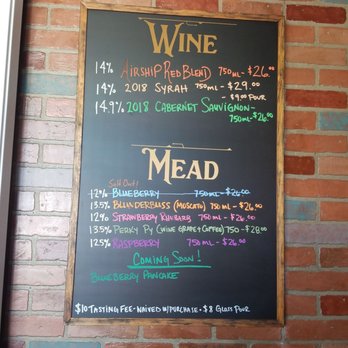 WINE
14% AIRSHIP RED BLEND 750ML - $26.00
14% 2018 SYRAH 750ML - $29.00
- $9.00 POUR
14.9% 2018 CABERNET SAUVIGNON -
750ML - $26.00
MEAD
Sold Out!
12% BLUEBERRY 750ML - $26.00
13.5% BLUNDERBUSS (MOSCATO) 750ML - $26.00
12% STRAWBERRY RHUBARB 750ML - $26.00
13.5% PERKY PY (WINE GRAPE & COFFEE) 750 - $28.00
12.5% RASPBERRY 750ML - $26.00
COMING SOON!
BLUEBERRY PANCAKE
$10 TASTING FEE - WAIVED W/PURCHASE • $8 GLASS POUR